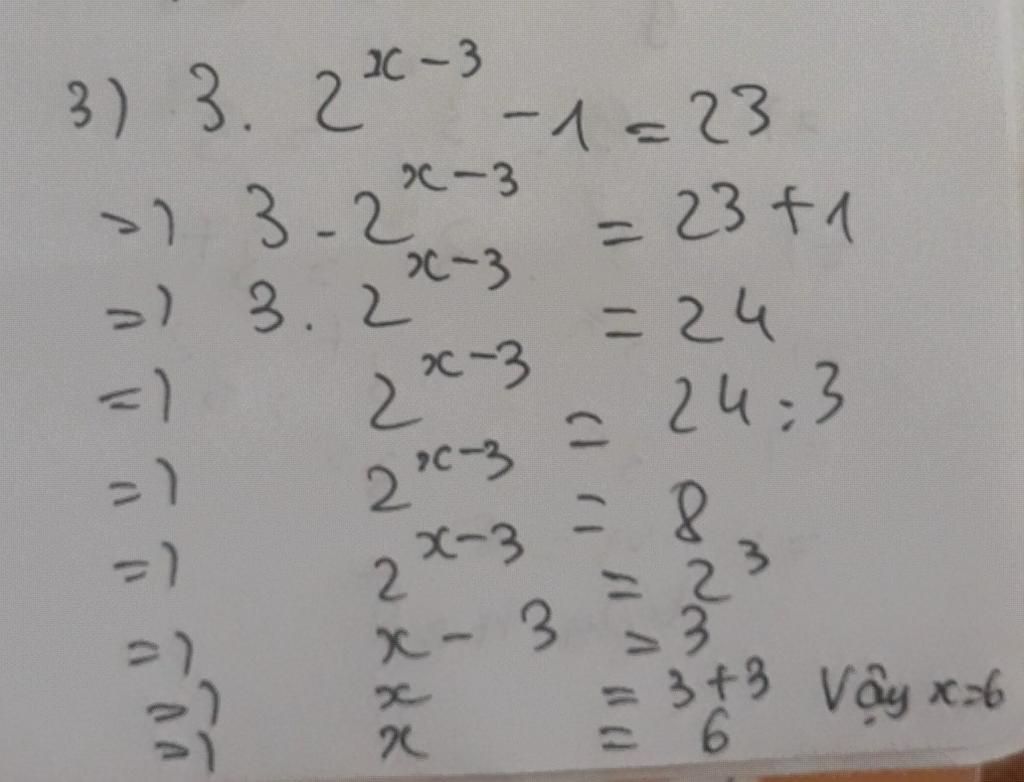 3) 3. 2^{x-3} - 1 = 23
=> 3 . 2^{x-3} = 23 + 1
=> 3 . 2^{x-3} = 24
=> 2^{x-3} = 24 : 3
=> 2^{x-3} = 8
=> 2^{x-3} = 2^3
=> x - 3 = 3
=> x = 3 + 3 Vậy x = 6
=> x = 6